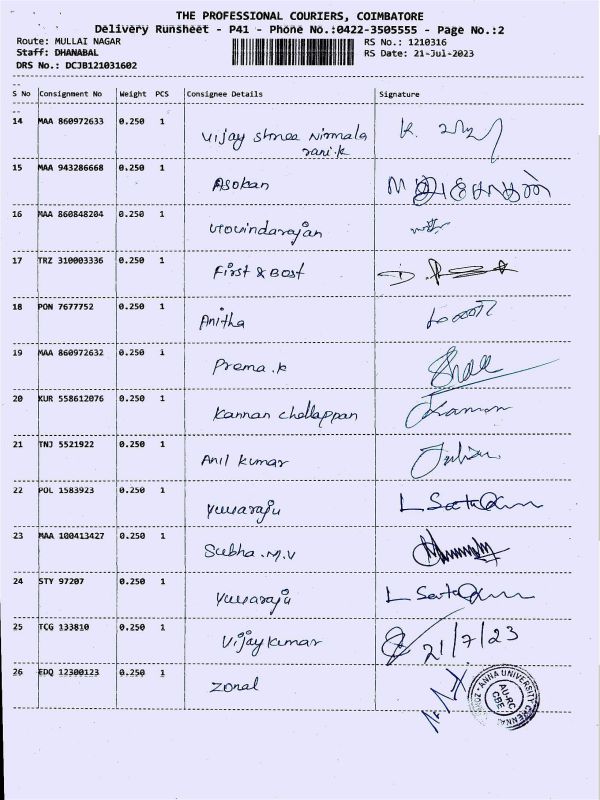 THE PROFESSIONAL COURIERS, COIMBATORE
Delivery Runsheet - P41 - Phone No.:0422-3505555 - Page No.:2
Route: MULLAI NAGAR RS No.: 1210316
Staff: DHANABAL RS Date: 21-Jul-2023
DRS No.: DCJB121031602
S No Consignment No Weight PCS Consignee Details Signature
14 MAA 860972633 0.250 1 Vijay Shree Nirmala
rani.k
15 MAA 943286668 0.250 1 Asokan
16 MAA 860848204 0.250 1 Govindarajan
17 TRZ 310003336 0.250 1 First & Best
18 PON 7677752 0.250 1 Anitha
19 MAA 860972632 0.250 1 Prema.k
20 KUR 558612076 0.250 1 Kannan Chellappan
21 TNJ 5521922 0.250 1 Anil kumar
22 POL 1583923 0.250 1 Yuvaraju
23 MAA 100413427 0.250 1 Subha.M.V
24 STY 97207 0.250 1 Yuvaraju
25 TCG 133810 0.250 1 Vijay kumar 21/7/23
26 EDQ 12300123 0.250 1 Zonal
ANNA UNIVERSITY
AU-RC
CBE